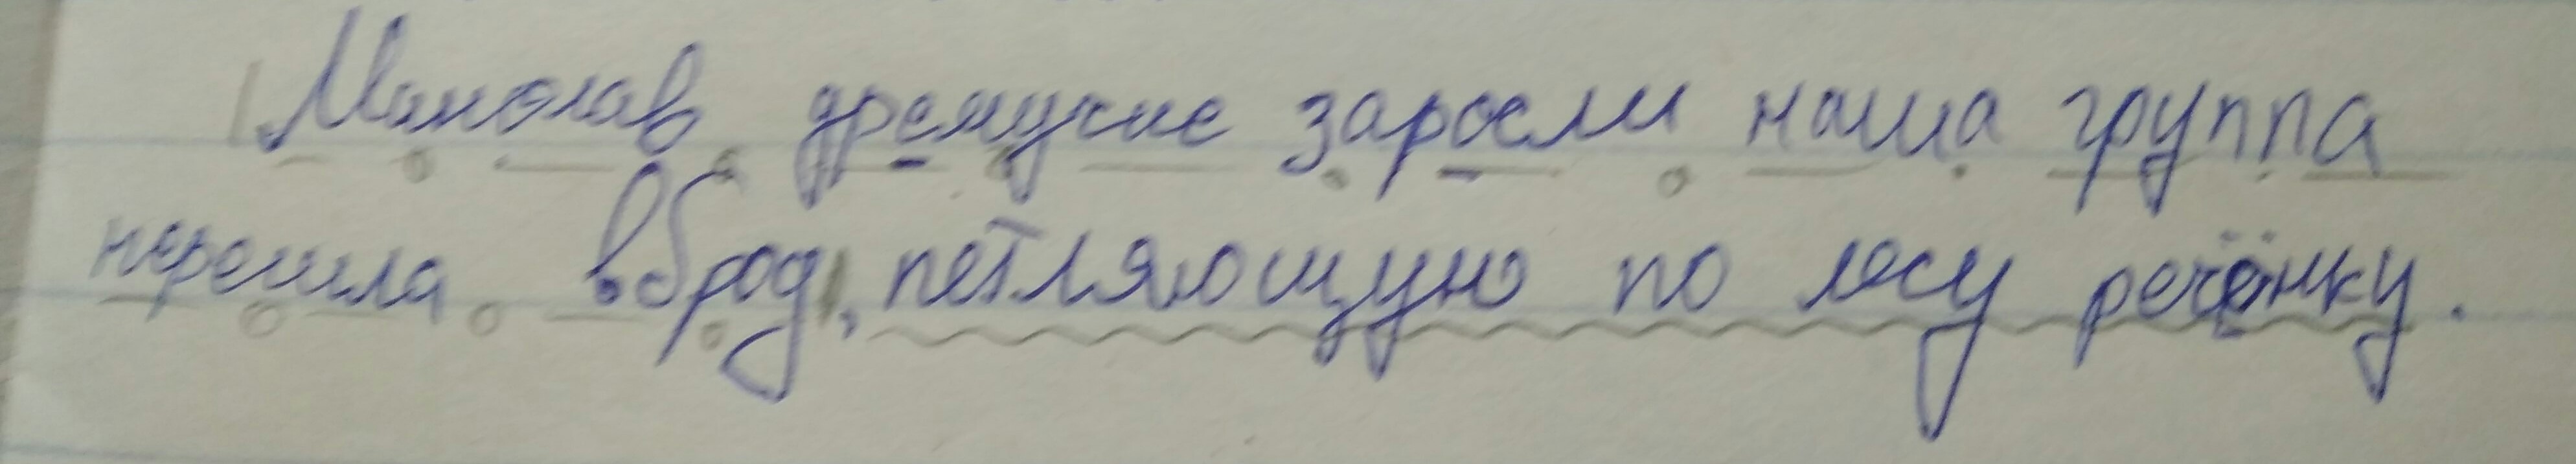 Миновав дремучие заросли наша группа
перешла вброд, петляющую по лесу речёнку.